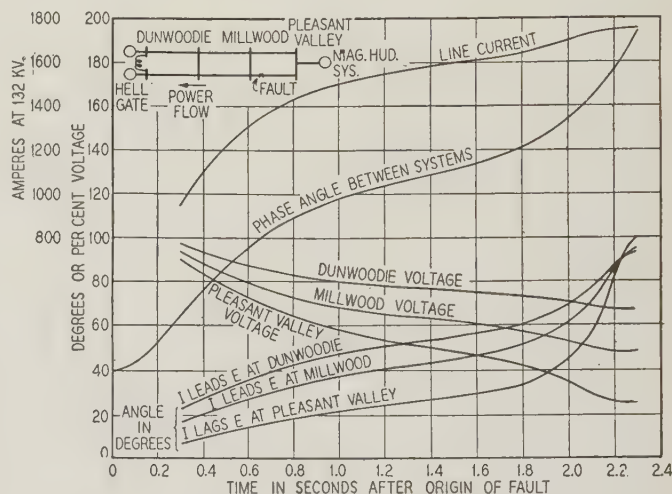 AMPERES AT 132 KV.
1800
1600
1400
1200
1000
800
DEGREES OR PER CENT VOLTAGE
200
180
160
140
120
100
80
60
40
20
0
PLEASANT
DUNWOODIE MILLWOOD VALLEY
MAG. HUD.
SYS.
HELL
GATE
POWER
FLOW
FAULT
LINE CURRENT
PHASE ANGLE BETWEEN SYSTEMS
DUNWOODIE VOLTAGE
MILLWOOD VOLTAGE
PLEASANT VALLEY
VOLTAGE
I LEADS E AT DUNWOODIE
I LEADS E AT MILLWOOD
I LAGS E AT PLEASANT VALLEY
ANGLE
IN
DEGREES
0 0.2 0.4 0.6 0.8 1.0 1.2 1.4 1.6 1.8 2.0 2.2 2.4
TIME IN SECONDS AFTER ORIGIN OF FAULT